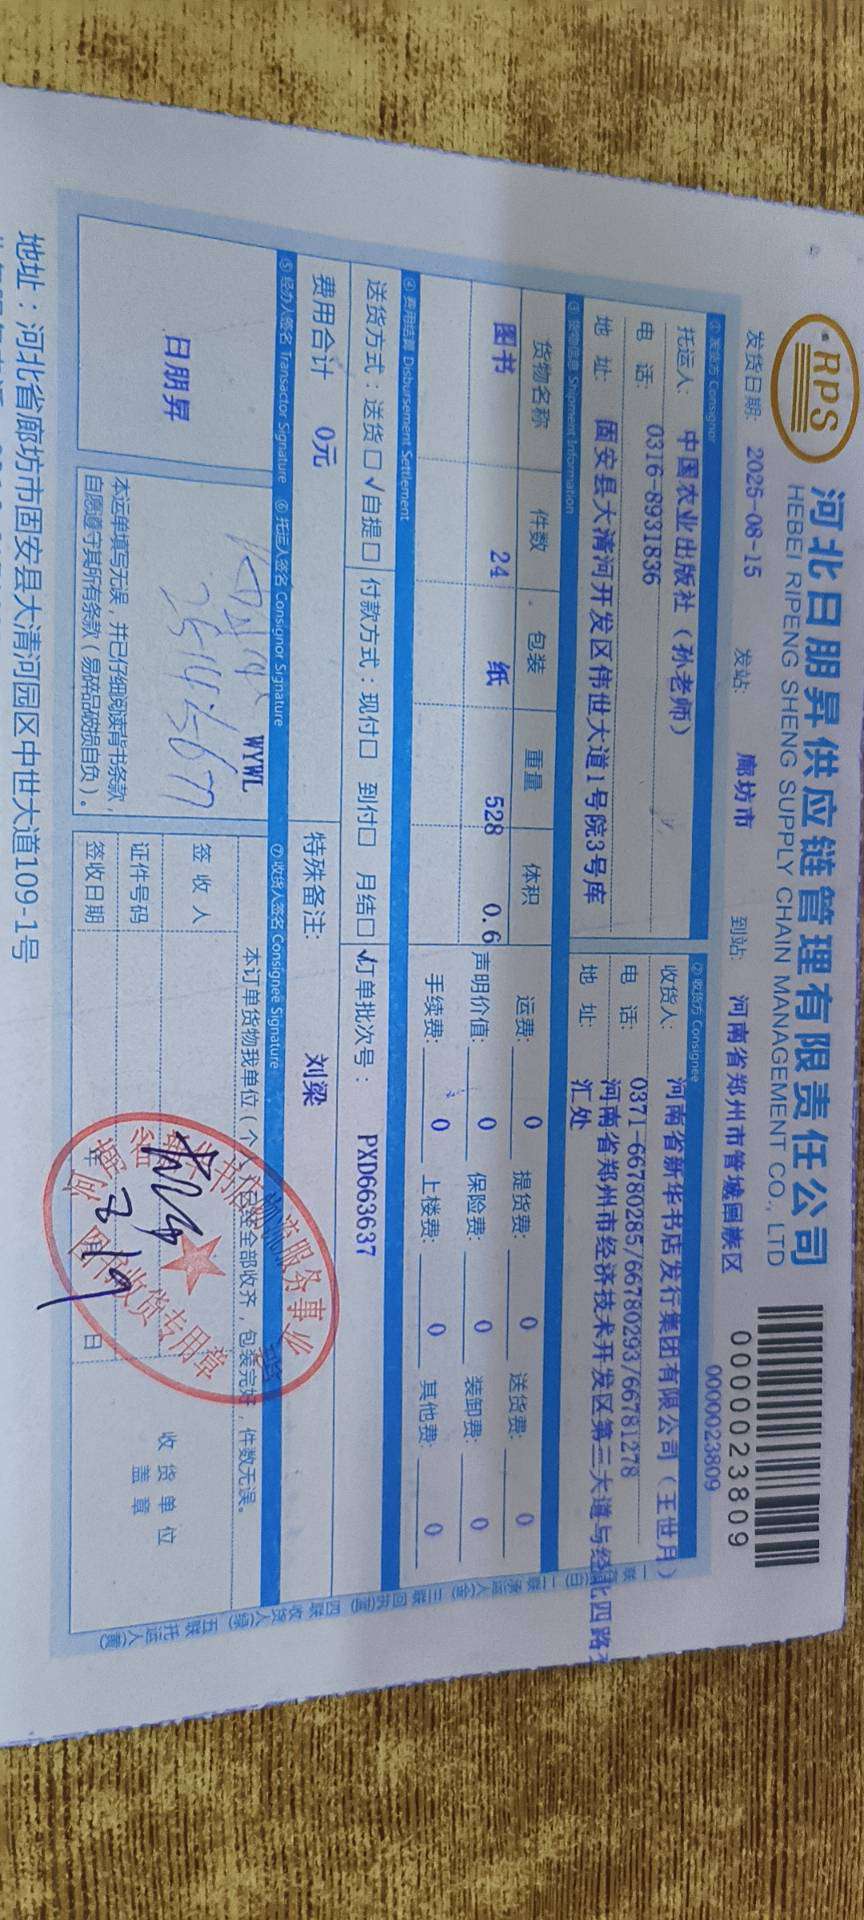 RPS
河北日朋昇供应链管理有限责任公司
HEBEI RIPENG SHENG SUPPLY CHAIN MANAGEMENT CO., LTD
0000023809
0000023809
发货日期: 2025-08-15 发站: 廊坊市 到站: 河南省郑州市管城回族区
① 发货方 Consignor
托运人: 中国农业出版社(孙老师)
电 话: 0316-8931836
地 址: 固安县大清河开发区伟世大道1号院3号库
② 收货方 Consignee
收货人: 河南省新华书店发行集团有限公司(王世月)
电 话: 0371-66780285/66780293/66781278
地 址: 河南省郑州市经济技术开发区第三大道与经北四路
汇处
③ 货物信息 Shipment Information
货物名称 件数 包装 重量 体积
图书 24 纸 528 0.6
运费: 0 提货费: 0 送货费: 0
声明价值: 0 保险费: 0 装卸费: 0
手续费: 0 上楼费: 0 其他费: 0
④ 费用结算 Disbursement Settlement
送货方式:送货□ √自提□ 付款方式:现付□ 到付□ 月结□ √ 订单批次号: PXD663637
费用合计 0元 特殊备注: 刘梁
⑤ 经办人签名 Transactor Signature ⑥ 托运人签名 Consignor Signature ⑦ 收货人签名 Consignee Signature
日朋昇
WYWL
本运单填写无误,并已仔细阅读背书条款,
自愿遵守其所有条款(易碎品破损自负)。
本订单货物我单位(个人)已经全部收齐,包装完好,件数无误。
签 收 人
证件号码
签收日期 年 月 日
8 19
收货单位
盖 章
图书收货专用章
地址:河北省廊坊市固安县大清河园区中世大道109-1号